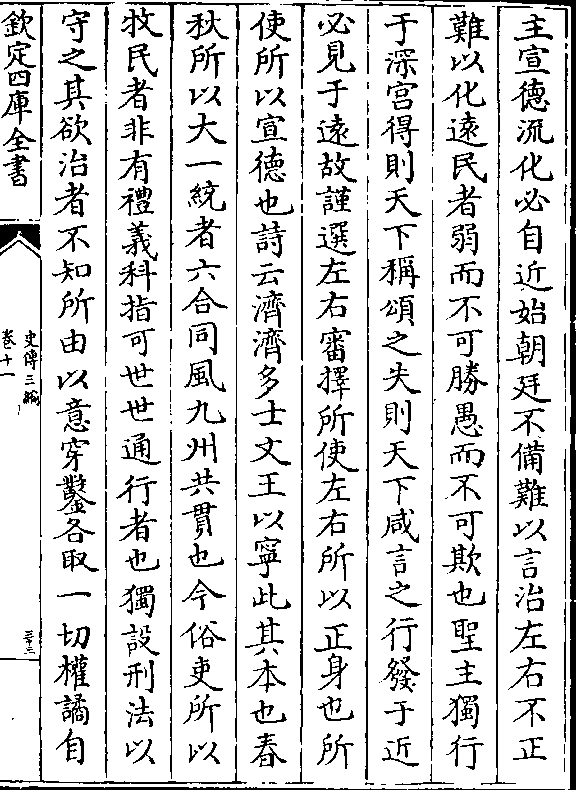 主宣德流化必自近始朝廷不備難以言治左右不正
難以化遠民者弱而不可勝愚而不可欺也聖主獨行
于深宮得則天下稱頌之失則天下咸言之行發于近
必見于遠故謹選左右審擇所使左右所以正身也所
使所以宣德也詩云濟濟多士文王以寧此其本也春
秋所以大一統者六合同風九州共貫也今俗吏所以
牧民者非有禮義科指可世世通行者也獨設刑法以
守之其欲治者不知所由以意穿鑿各取一切權譎自
欽定四庫全書
史傳三編
卷十一
三十二